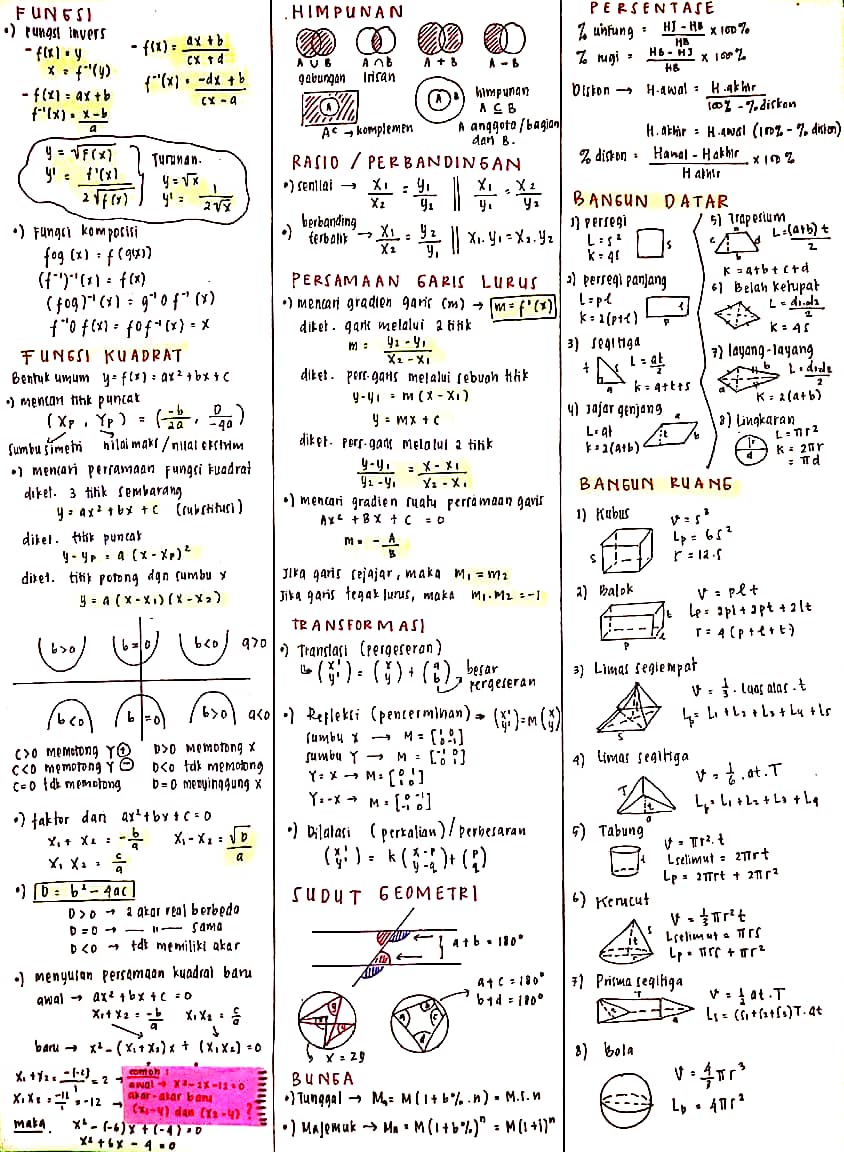 FUNGSI
•) Fungsi invers
- f(x) = y
x = f⁻¹(y)
- f(x) = ax + b
f⁻¹(x) = x-b / a
- f(x) = ax + b / cx + d
f⁻¹(x) = -dx + b / cx - a
y = √f(x)
y' = f'(x) / 2√f(x)
Turunan.
y = √x
y' = 1 / 2√x
•) Fungsi komposisi
fog (x) = f(g(x))
(f⁻¹)⁻¹(x) = f(x)
(fog)⁻¹(x) = g⁻¹ o f⁻¹(x)
f⁻¹o f(x) = fof⁻¹(x) = x
FUNGSI KUADRAT
Bentuk umum y = f(x) = ax² + bx + c
•) mencari titik puncak
(Xp, Yp) = (-b / 2a, D / -4a)
sumbu simetri nilai maks / nilai ekstrim
•) mencari persamaan fungsi kuadrat
diket. 3 titik sembarang
y = ax² + bx + c (substitusi)
diket. titik puncak
y - yp = a (x - xp)²
diket. titik potong dgn sumbu x
y = a (x - x₁)(x - x₂)
b>0 b=0 b<0 a>0
b<0 b=0 b>0 a<0
C>0 memotong Y ⊕ D>0 memotong X
C<0 memotong Y ⊖ D<0 tdk memotong
C=0 tdk memotong D=0 menyinggung X
•) faktor dari ax² + bx + c = 0
X₁ + X₂ = -b/a X₁ - X₂ = √D / a
X₁ X₂ = c/a
•) D = b² - 4ac
D>0 → 2 akar real berbeda
D=0 → — " — sama
D<0 → tdk memiliki akar
•) menyusun persamaan kuadrat baru
awal → ax² + bx + c = 0
X₁ + X₂ = -b/a X₁X₂ = c/a
baru → x² - (X₁+X₂)x + (X₁X₂) = 0
X₁ + X₂ = -(-2)/1 = 2
X₁X₂ = -12/1 = -12
contoh:
awal → x² - 2x - 12 = 0
akar-akar baru
(x₁-4) dan (x₂-4) ?
maka. x² - (-6)x + (-4) = 0
x² + 6x - 4 = 0
HIMPUNAN
A ∪ B A ∩ B A + B A - B
gabungan Irisan
A
Aᶜ → komplemen
A B
himpunan
A ⊆ B
A anggota / bagian
dari B.
RASIO / PERBANDINGAN
•) senilai → X₁/X₂ = Y₁/Y₂ || X₁/Y₁ = X₂/Y₂
•) berbanding
terbalik → X₁/X₂ = Y₂/Y₁ || X₁.Y₁ = X₂.Y₂
PERSAMAAN GARIS LURUS
•) mencari gradien garis (m) → m = f'(x)
diket. garis melalui 2 titik
m = Y₂ - Y₁ / X₂ - X₁
diket. pers-garis melalui sebuah titik
y - y₁ = m (x - x₁)
y = mx + c
diket. pers-garis melalui 2 titik
y-y₁ / y₂-y₁ = x - x₁ / x₂ - x₁
•) mencari gradien suatu persamaan garis
Ax² + Bx + C = 0
m = -A/B
Jika garis sejajar, maka m₁ = m₂
Jika garis tegak lurus, maka m₁.m₂ = -1
TRANSFORMASI
•) Translasi (pergeseran)
↳ (x' y') = (x y) + (a b) → besar
pergeseran
•) Refleksi (pencerminan) → (x' y') = M (x y)
sumbu X → M = [1 0 0 -1]
sumbu Y → M = [-1 0 0 1]
Y = X → M = [0 1 1 0]
Y = -X → M = [0 -1 -1 0]
•) Dilatasi (perkalian) / perbesaran
(x' y') = k (x-p y-q) + (p q)
SUDUT GEOMETRI
a + b = 180°
a + c = 180°
b + d = 180°
x = 2y
BUNGA
•) Tunggal → Mₙ = M(1 + b% . n) = M.i.n
•) Majemuk → Mₙ = M(1 + b%)ⁿ = M(1+i)ⁿ
PERSENTASE
% untung = HJ - HB / HB x 100%
% rugi = HB - HJ / HB x 100%
Diskon → H.awal = H.akhir / 100% - % diskon
H.akhir = H.awal (100% - % diskon)
% diskon = Hawal - Hakhir / Hakhir x 100%
BANGUN DATAR
1) persegi
L = s²
k = 4s
s
2) persegi panjang
L = p.l
k = 2(p+l)
p l
3) segitiga
L = at/2
k = a+t+s
t a
4) Jajar genjang
L = at
k = 2(a+b)
a t b
5) Trapesium
L = (a+b) t / 2
k = a+b+c+d
6) Belah ketupat
L = d₁.d₂ / 2
k = 4s
7) layang-layang
L = d₁d₂ / 2
k = 2(a+b)
8) Lingkaran
L = πr²
k = 2πr
= πd
BANGUN RUANG
1) Kubus
V = s³
Lp = 6s²
r = 12.s
s
2) Balok
V = plt
Lp = 2pl + 2pt + 2lt
r = 4(p+l+t)
p l t
3) Limas segiempat
V = 1/3 . luas alas . t
Lp = L₁ + L₂ + L₃ + L₄ + L₅
4) Limas segitiga
V = 1/6 .at.T
Lp = L₁ + L₂ + L₃ + L₄
5) Tabung
V = πr².t
Lselimut = 2πrt
Lp = 2πrt + 2πr²
6) Kerucut
V = 1/3 πr²t
Lselimut = πrs
Lp = πrs + πr²
7) Prisma segitiga
V = 1/2 at.T
Ls = (s₁+s₂+s₃)T.at
8) Bola
V = 4/3 πr³
Lp = 4πr²